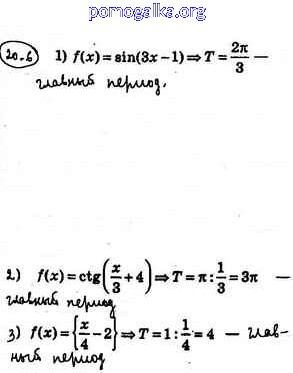 pomogalka.org
20.6 1) f(x) = sin(3x − 1) ⇒ T = 2π/3 —
главный период.
2) f(x) = ctg(x/3 + 4) ⇒ T = π : 1/3 = 3π —
главный период
3) f(x) = {x/4 − 2} ⇒ T = 1 : 1/4 = 4 — глав-
ный период